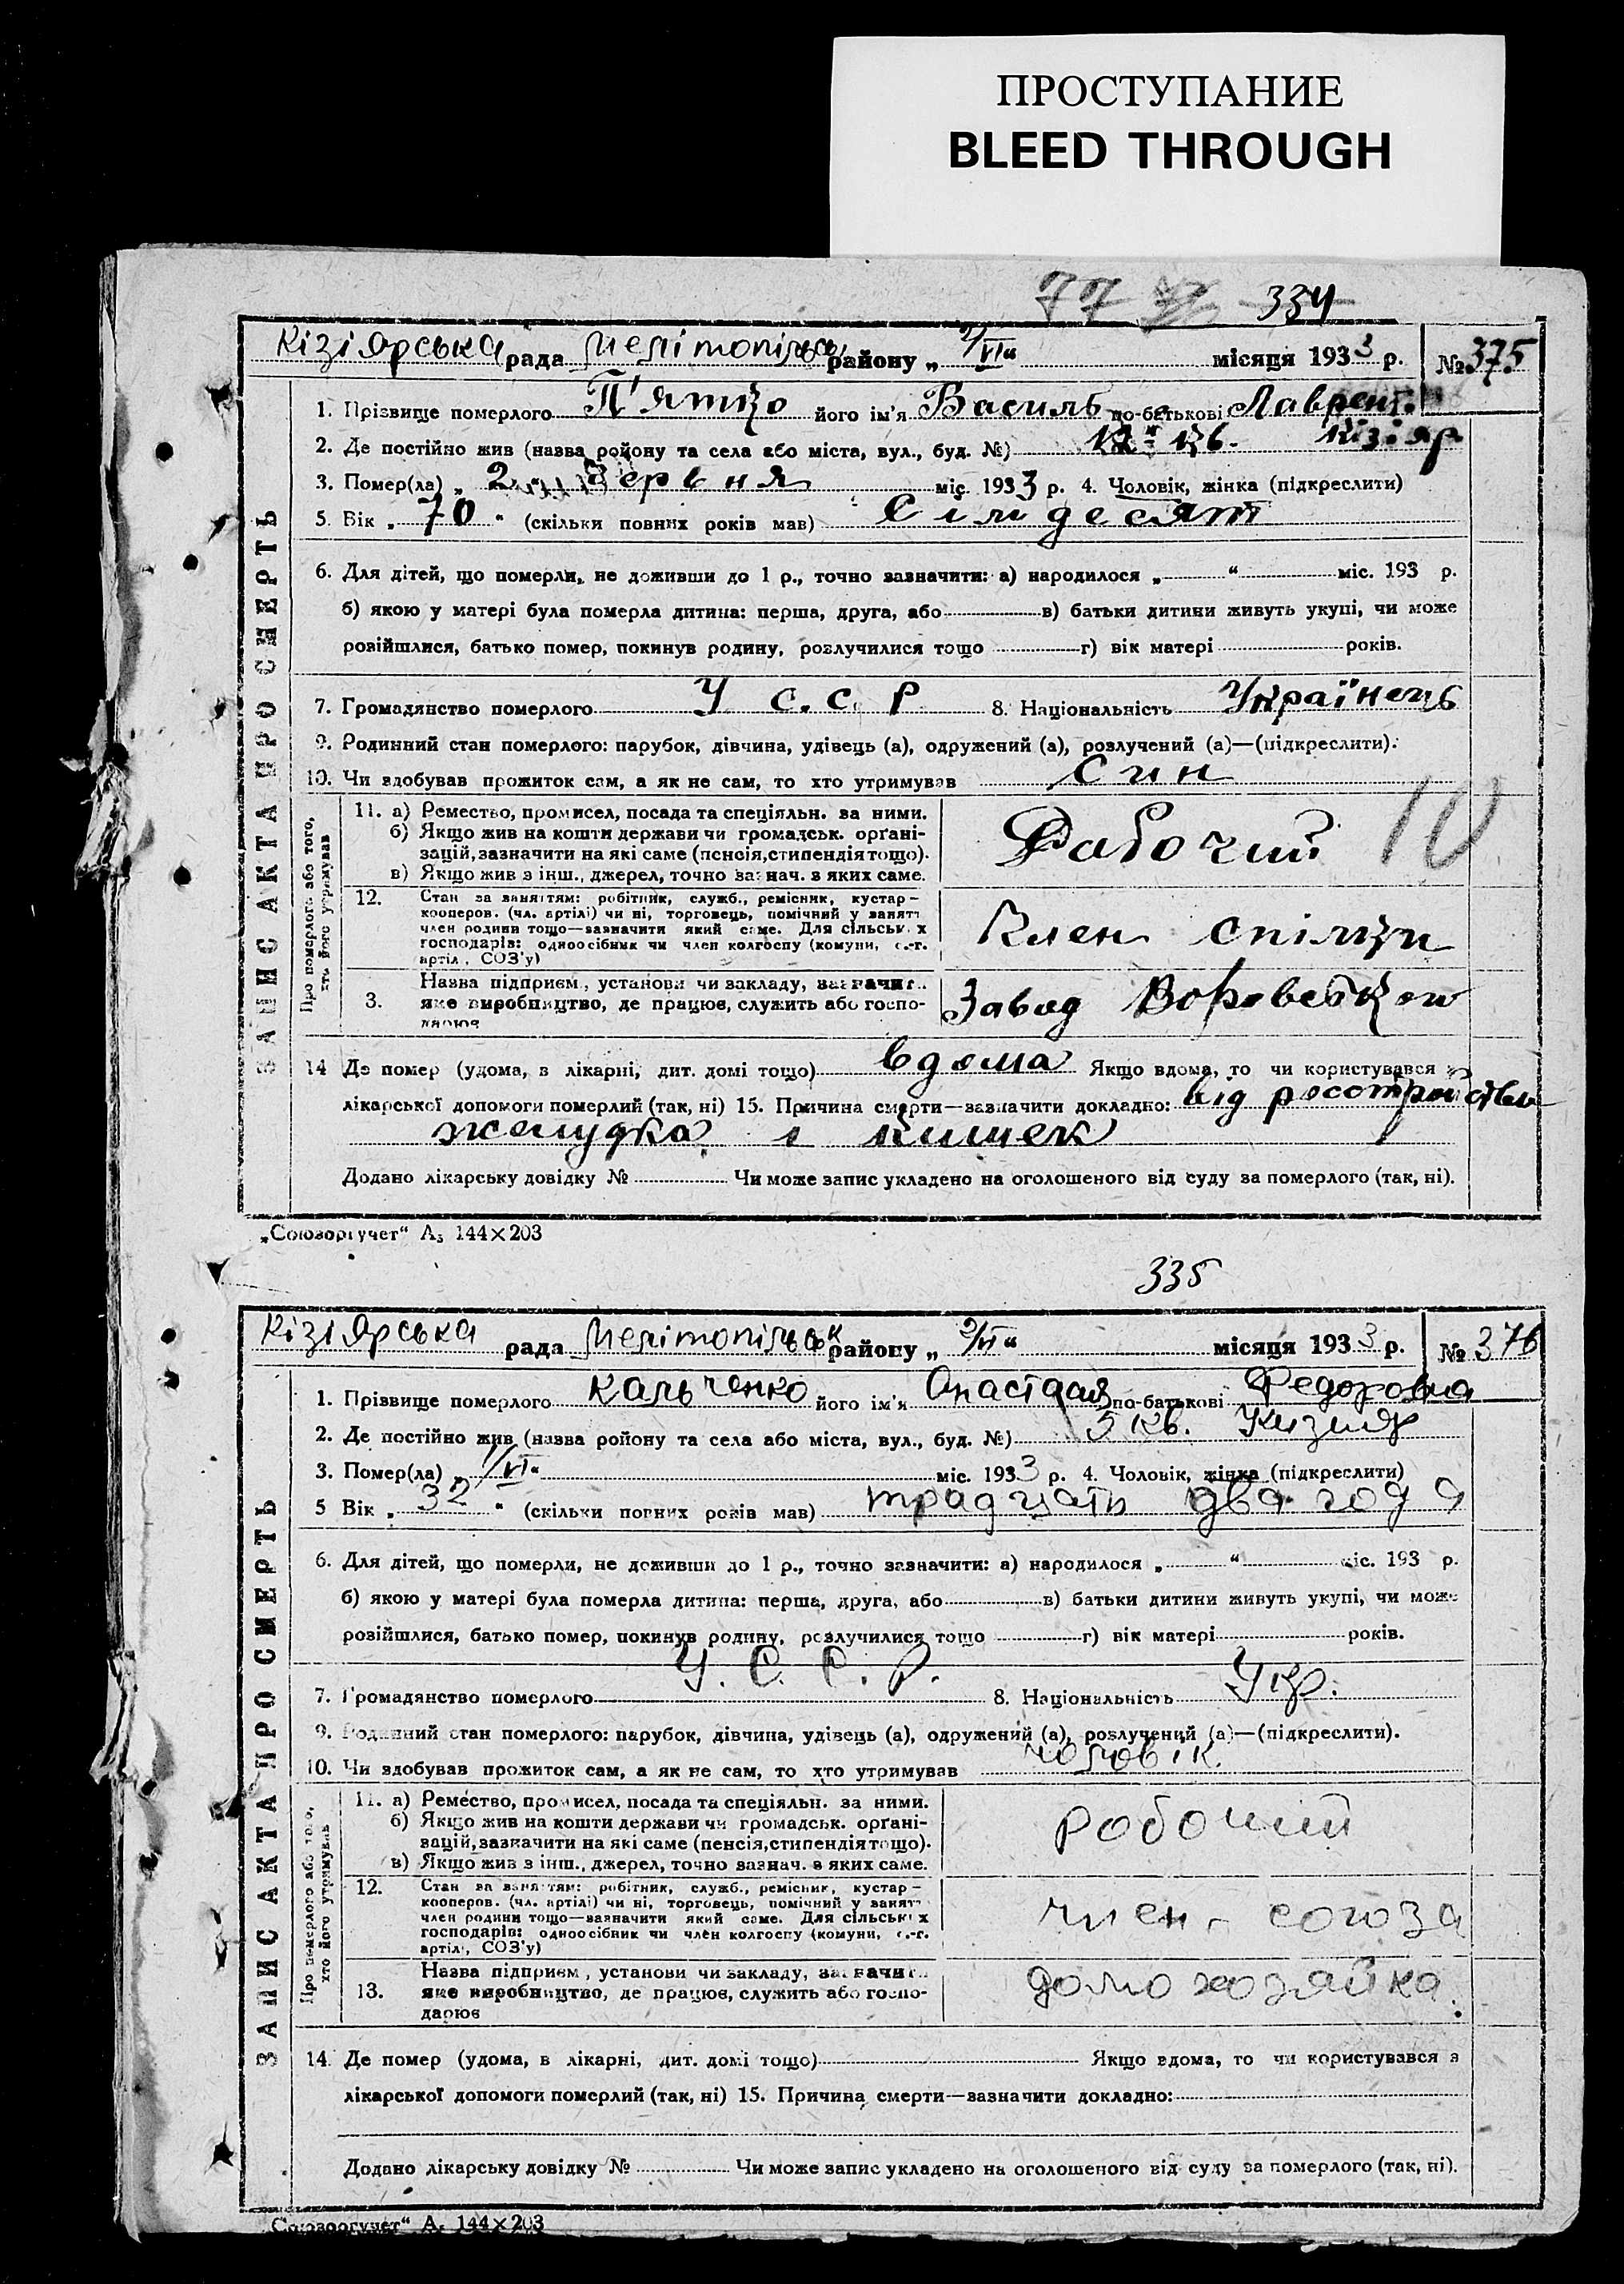 ПРОСТУПАНИЕ
BLEED THROUGH
77 334
Кізіярська рада Мелітопільськ району „ 2/VI “ місяця 1933 р. № 375
1. Прізвище померлого П'ятко його ім'я Василь по-батькові Лаврент.
2. Де постійно жив (назва району та села або міста, вул., буд. №) кв. Кізіяр
3. Помер(ла) „ 2 “ Червня міс. 1933 р. 4. Чоловік, жінка (підкреслити)
5. Вік „ 70 “ (скільки повних років мав) Сімдесят
6. Для дітей, що померли, не доживши до 1 р., точно зазначити: а) народилося „ “ міс. 193 р.
б) якою у матері була померла дитина: перша, друга, або в) батьки дитини живуть укупі, чи може
розійшлися, батько помер, покинув родину, розлучилися тощо г) вік матері років.
7. Громадянство померлого У с. с. р 8. Національність Українець
9. Родинний стан померлого: парубок, дівчина, удівець (а), одружений (а), розлучений (а)—(підкреслити).
10. Чи здобував прожиток сам, а як не сам, то хто утримував син
ЗАПИС АКТА ПРО СМЕРТЬ
Про померлого або того, хто його утримував
11. а) Ремество, промисел, посада та спеціяльн. за ними.
б) Якщо жив на кошти держави чи громадськ. орґані-
зацій, зазначити на які саме (пенсія, стипендія тощо).
в) Якщо жив з інш., джерел, точно зазнач. з яких саме.
Рабочий 10
12. Стан за заняттям: робітник, служб., ремісник, кустар—
кооперов. (чл. артілі) чи ні, торговець, помічний у занятт
член родини тощо—зазначити який саме. Для сільськ х
господарів: одноосібник чи член колгоспу (комуни, с.-г.
артіл , СОЗ'у)
Член спілки
3. Назва підприєм , установи чи закладу, зазначит..
яке виробництво, де працює, служить або госпо-
дарює
Завод
14 Де помер (удома, в лікарні, дит. домі тощо) вдома Якщо вдома, то чи користувався з
лікарської допомоги померлий (так, ні) 15. Причина смерти—зазначити докладно: від
желудка і кишек
Додано лікарську довідку № Чи може запис укладено на оголошеного від суду за померлого (так, ні).
„Союзоргучет“ А₅ 144×203
335
Кізіярська рада Мелітопільськ району „ 2/VI “ місяця 1933 р. № 376
1. Прізвище померлого Кальченко його ім'я Анастасія по-батькові Федоровна
2. Де постійно жив (назва району та села або міста, вул., буд. №) 5 кв. Кизияр
3. Помер(ла) „ 1/VI “ міс. 1933 р. 4. Чоловік, жінка (підкреслити)
5 Вік „ 32 “ (скільки повних років мав) традцать два года
6. Для дітей, що померли, не доживши до 1 р., точно зазначити: а) народилося „ “ міс. 193 р.
б) якою у матері була померла дитина: перша, друга, або в) батьки дитини живуть укупі, чи може
розійшлися, батько помер, покинув родину, розлучилися тощо г) вік матері років.
7. Громадянство померлого У. С. С. Р. 8. Національність Укр.
9. Родинний стан померлого: парубок, дівчина, удівець (а), одружений (а), розлучений (а)—(підкреслити).
10. Чи здобував прожиток сам, а як не сам, то хто утримував чоловік.
ЗАПИС АКТА ПРО СМЕРТЬ
Про померлого або того, хто його утримував
11. а) Ремество, промисел, посада та спеціяльн. за ними.
б) Якщо жив на кошти держави чи громадськ. орґані-
зацій, зазначити на які саме (пенсія, стипендія тощо).
в) Якщо жив з інш., джерел, точно зазнач. з яких саме.
робочий
12. Стан за заняттям: робітник, служб., ремісник, кустар—
кооперов. (чл. артілі) чи ні, торговець, помічний у занятт
член родини тощо—зазначити який саме. Для сільськ х
господарів: одноосібник чи член колгоспу (комуни, с.-г.
артіл , СОЗ'у)
член союза
13. Назва підприєм , установи чи закладу, зазначит..
яке виробництво, де працює, служить або госпо-
дарює
домохозяйка.
14. Де помер (удома, в лікарні, дит. домі тощо) Якщо вдома, то чи користувався з
лікарської допомоги померлий (так, ні) 15. Причина смерти—зазначити докладно:
Додано лікарську довідку № Чи може запис укладено на оголошеного від суду за померлого (так, ні).
„Союзоргучет“ А₅ 144×203